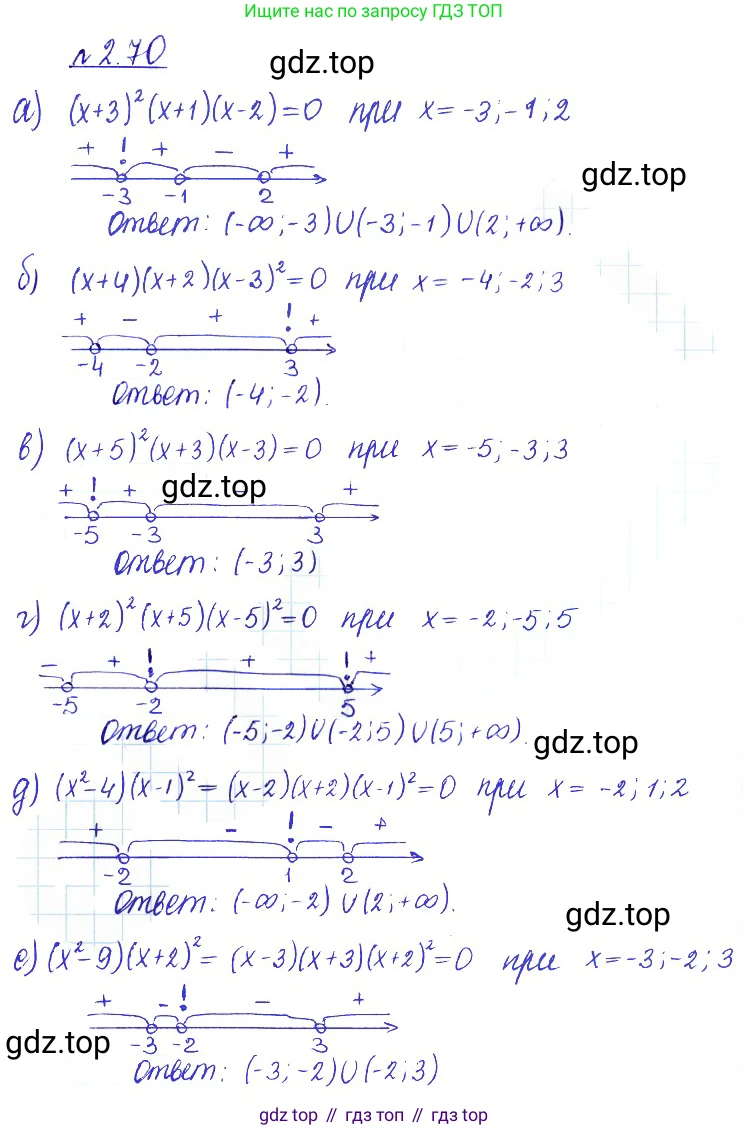 Ищите нас по запросу ГДЗ ТОП
№ 2.70
gdz.top
а) (x+3)²(x+1)(x-2)=0 при x=-3;-1;2
+ ! + - +
-3 -1 2
gdz.top
Ответ: (-∞;-3)∪(-3;-1)∪(2;+∞).
б) (x+4)(x+2)(x-3)²=0 при x=-4;-2;3
+ - + ! +
-4 -2 3
Ответ: (-4;-2).
в) (x+5)²(x+3)(x-3)=0 при x=-5;-3;3
+ ! + gdz.top +
-5 -3 3
Ответ: (-3;3)
г) (x+2)²(x+5)(x-5)²=0 при x=-2;-5;5
- + ! + ! +
-5 -2 5
Ответ: (-5;-2)∪(-2;5)∪(5;+∞).
gdz.top
д) (x²-4)(x-1)²=(x-2)(x+2)(x-1)²=0 при x=-2;1;2
+ - ! - +
-2 1 2
Ответ: (-∞;-2)∪(2;+∞).
gdz.top
е) (x²-9)(x+2)²=(x-3)(x+3)(x+2)²=0 при x=-3;-2;3
+ - ! - +
-3 -2 3
gdz.top
Ответ: (-3;-2)∪(-2;3)
gdz top // гдз топ // gdz top